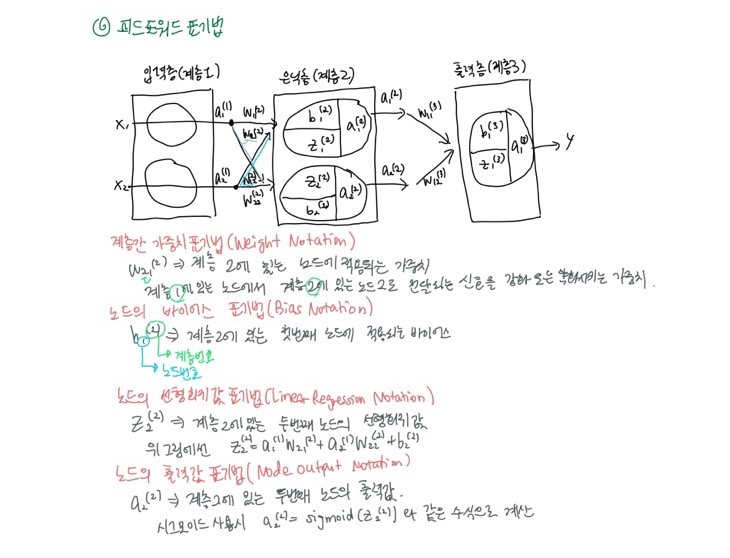 ⑥ 피드포워드 표기법
입력층(계층1) 은닉층(계층2) 출력층(계층3)
x₁ a₁⁽¹⁾ w₁₁⁽²⁾ b₁⁽²⁾ z₁⁽²⁾ a₁⁽²⁾ a₁⁽²⁾ w₁₁⁽³⁾ b₁⁽³⁾ z₁⁽³⁾ a₁⁽³⁾ y
x₂ a₂⁽¹⁾ w₂₂⁽²⁾ z₂⁽²⁾ b₂⁽²⁾ a₂⁽²⁾ a₂⁽²⁾ w₁₂⁽³⁾
계층간 가중치 표기법(Weight Notation)
w₂₁⁽²⁾ ⇒ 계층 2에 있는 노드에 적용되는 가중치
계층 1에 있는 노드에서 계층 2에 있는 노드2로 전달되는 신호를 강화 또는 약화시키는 가중치.
노드의 바이어스 표기법(Bias Notation)
b₁⁽²⁾ ⇒ 계층2에 있는 첫번째 노드에 적용되는 바이어스
계층번호
노드번호
노드의 선형회귀값 표기법(Linear Regression Notation)
z₂⁽²⁾ ⇒ 계층2에 있는 두번째 노드의 선형회귀값
위 그림에선 z₂⁽²⁾ = a₁⁽¹⁾w₂₁⁽²⁾ + a₂⁽¹⁾w₂₂⁽²⁾ + b₂⁽²⁾
노드의 출력값 표기법(Node Output Notation)
a₂⁽²⁾ ⇒ 계층2에 있는 두번째 노드의 출력값.
시그모이드 사용시 a₂⁽²⁾ = sigmoid(z₂⁽²⁾) 와 같은 수식으로 계산